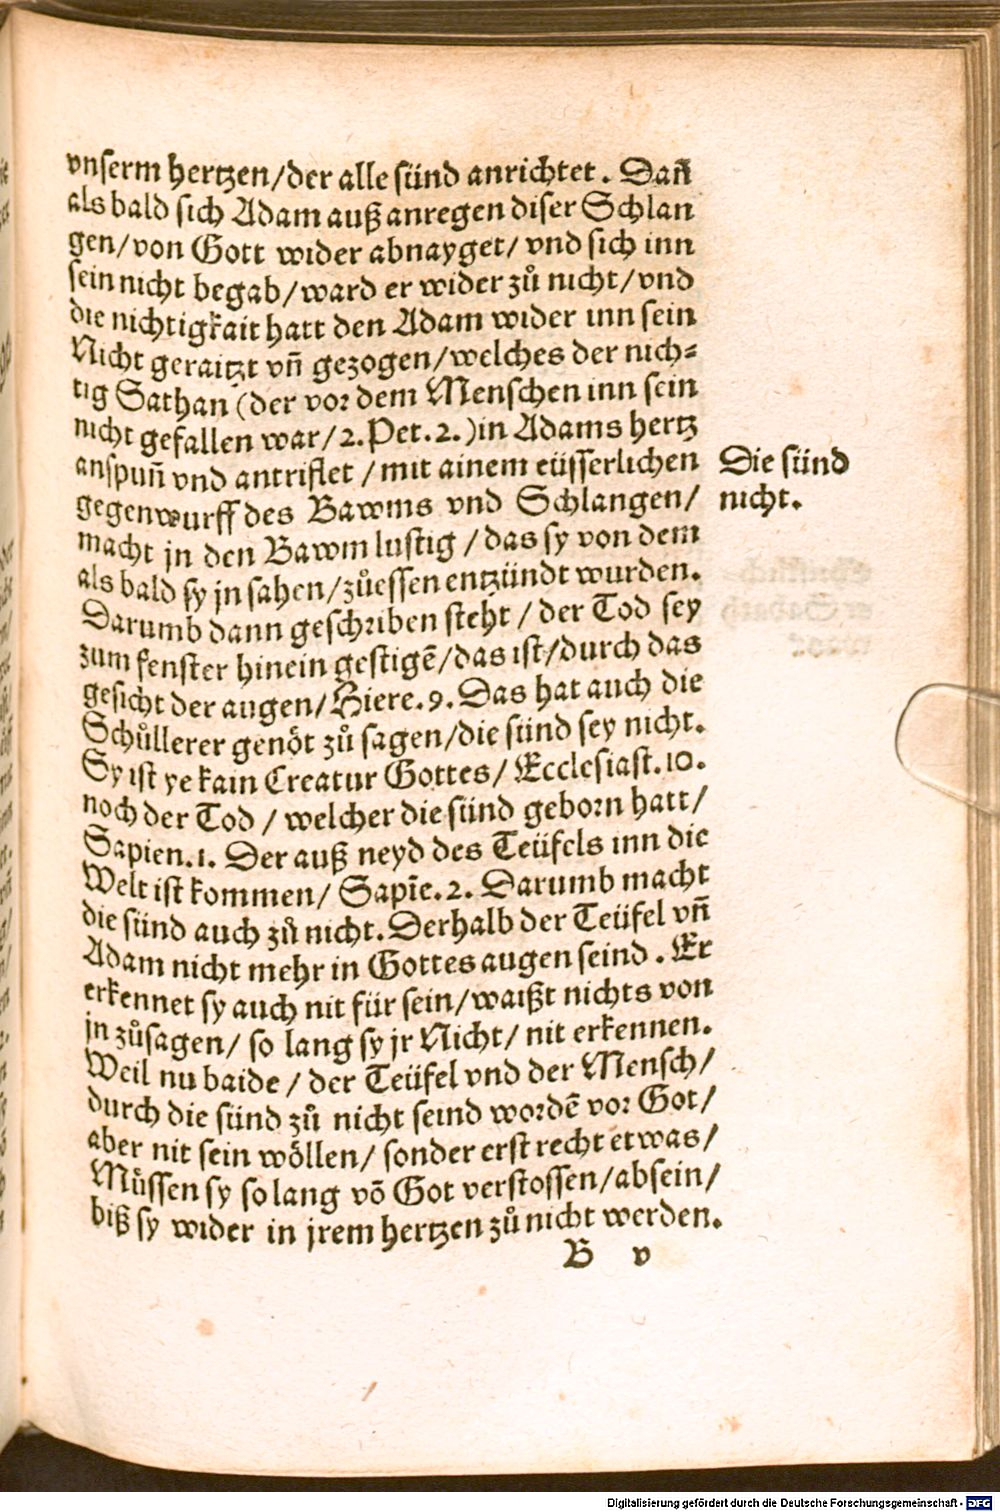 vnserm hertzen/der alle sünd anrichtet. Dañ
als bald sich Adam auß anregen diser Schlan
gen/von Gott wider abnayget/ vnd sich inn
sein nicht begab/ward er wider zů nicht/vnd
die nichtigkait hatt den Adam wider inn sein
Nicht geraitzt vñ gezogen/welches der nich-
tig Sathan (der vor dem Menschen inn sein
nicht gefallen war/2.Pet.2.)in Adams hertz
anspuñ vnd antriflet/mit ainem eüsserlichen
gegenwurff des Bawms vnd Schlangen/
macht jn den Bawm lustig/das sy von dem
als bald sy jn sahen/zůessen entzündt wurden.
Darumb dann geschriben steht/der Tod sey
zum fenster hinein gestigẽ/das ist/durch das
gesicht der augen/Hiere.9. Das hat auch die
Schůllerer genöt zů sagen/die sünd sey nicht.
Sy ist ye kain Creatur Gottes/Ecclesiast.10.
noch der Tod/welcher die sünd geborn hatt/
Sapien.1. Der auß neyd des Teüfels inn die
Welt ist kommen/Sapiẽ.2. Darumb macht
die sünd auch zů nicht. Derhalb der Teüfel vñ
Adam nicht mehr in Gottes augen seind. Er
erkennet sy auch nit für sein/waißt nichts von
jn zůsagen/ so lang sy jr Nicht/ nit erkennen.
Weil nu baide/der Teüfel vnd der Mensch/
durch die sünd zů nicht seind wordẽ vor Got/
aber nit sein wöllen/sonder erst recht etwas/
Můssen sy so lang võ Got verstossen/absein/
biß sy wider in jrem hertzen zů nicht werden.
B v
Die sünd
nicht.
Digitalisierung gefördert durch die Deutsche Forschungsgemeinschaft - DFG